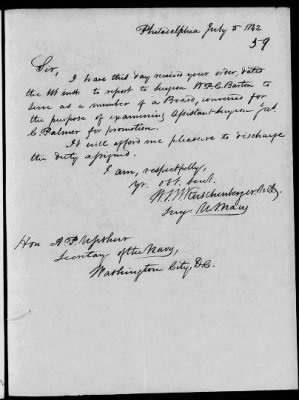 Philadelphia July 5 1842
59
Sir,
I have this day received your order, dated
the 1st inst. to report to Surgeon W.P.C. Barton to
serve as a member of a Board, convened for
the purpose of examining Assistant-Surgeon Jas.
C. Palmer for promotion.
It will afford me pleasure to discharge
the duty assigned.
I am, respectfully,
Yr. obt. servt.
W.S.W. Ruschenberger, M.D.
Surgn. U.S. Navy
Hon A. P. Upshur
Secretary of the Navy,
Washington City, D.C.